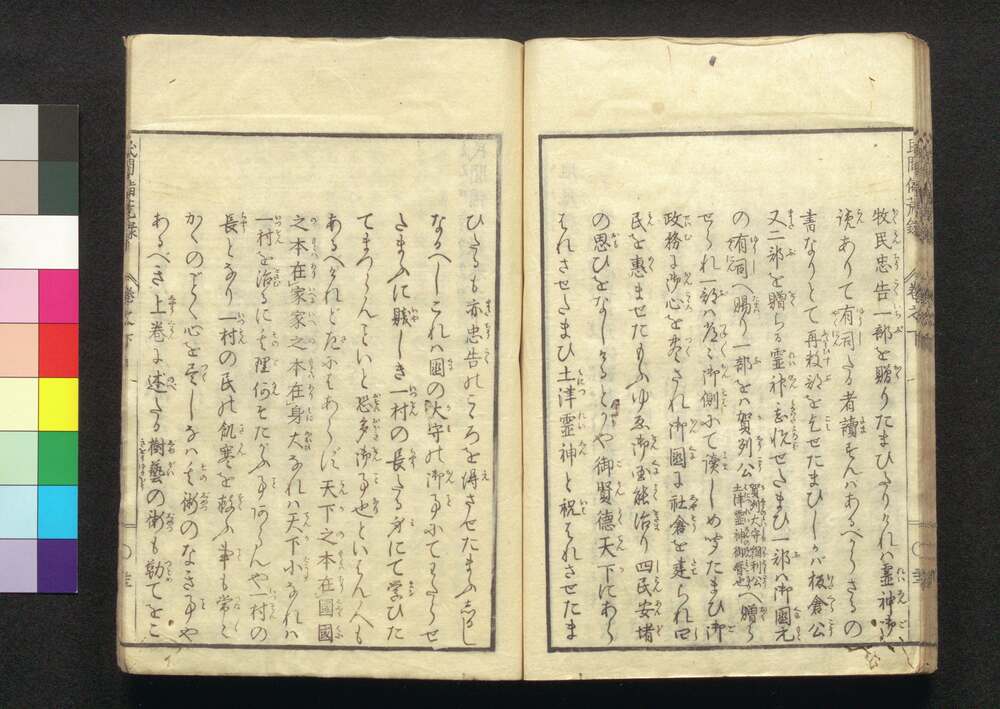 牧民忠告一部を贈りたまひたりけれハ霊神御
読ありて有司たる者讀すんハあるへからさるの
書なりとて再板を乞せたまひしかハ板倉公
又二部を贈らる霊神志悦せたまひ一部ハ御國元
の有司へ賜り一部をハ賀列公へ贈ら
賀列大守綱利公
土津霊神御聟也
せられ一部ハ御側にて湊しめ給たまひ御
政務に御心を尽され御國に社倉を建られ四
民を惠ませたもふゆゑ御國能治り四民安堵
の思ひをなしけるとかや御賢徳天下にあら
はれさせたまひ土津霊神と祝はれさせたま
ひたるも亦忠告のこころを得させたまふ
なるへしこれハ國の大守の御事にてわたらせ
たまふに賎しき一村の長たる身にて学ひた
てまつらんこといと恐多御事也といはん人も
あるへけれど左にもあらず天下之本在國國
之本在家家之本在身大なれハ天下小なれハ
一村を治るに其理何そたがふ事あらんや一村の
長となり一村の民の飢寒を救ふ事も常に
かくのごとく心を尽しなハ其術のなき事や
あるべき上巻に述たる樹藝の術も勤てをこ
民間備荒録
巻之下
民間備荒録
巻之下